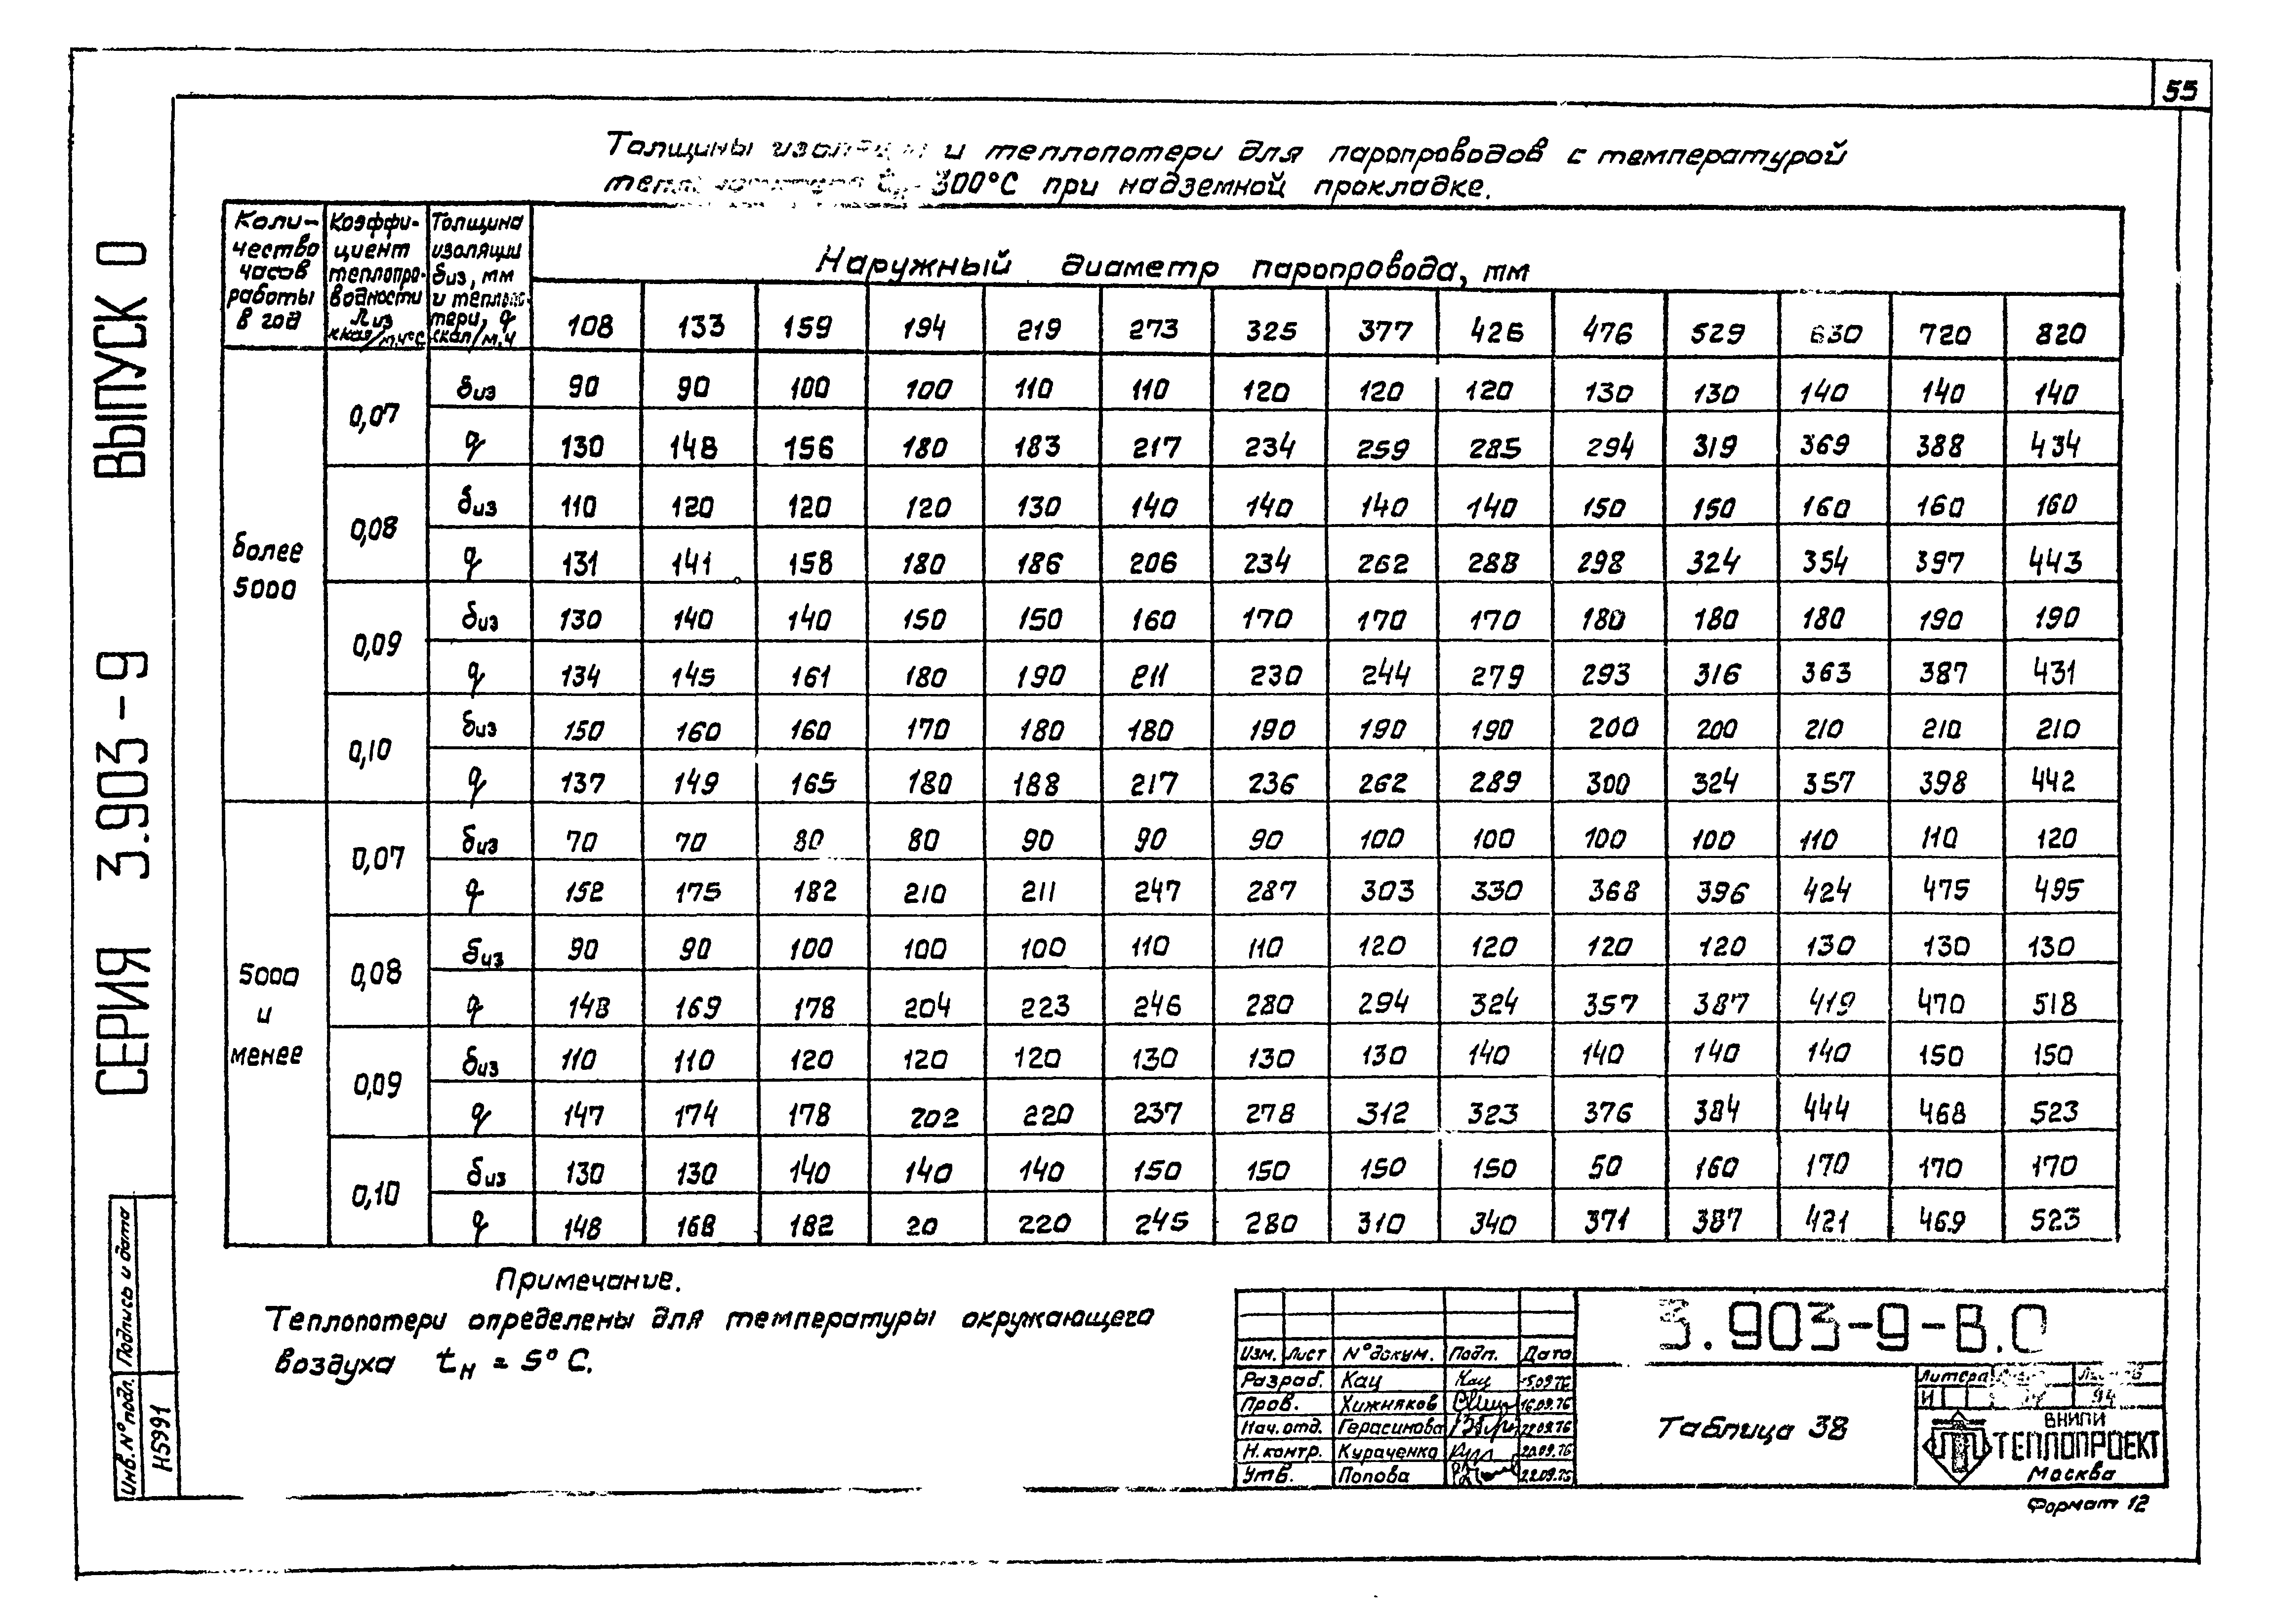 55
Толщины изоляции и теплопотери для паропроводов с температурой
300°С при надземной прокладке.
Коли- чество часов работы в год
Коэффи- циент теплопро- водности λиз ккал/м.ч°С
Толщина изоляции δиз, мм и теплопо- тери, q ккал/м.ч
Наружный диаметр паропровода, мм
108 133 159 194 219 273 325 377 426 476 529 630 720 820
более 5000
0,07
δиз 90 90 100 100 110 110 120 120 120 130 130 140 140 140
q 130 148 156 180 183 217 234 259 285 294 319 369 388 434
0,08
δиз 110 120 120 120 130 140 140 140 140 150 150 160 160 160
q 131 141 158 180 186 206 234 262 288 298 324 354 397 443
0,09
δиз 130 140 140 150 150 160 170 170 170 180 180 180 190 190
q 134 145 161 180 190 211 230 244 279 293 316 363 387 431
0,10
δиз 150 160 160 170 180 180 190 190 190 200 200 210 210 210
q 137 149 165 180 188 217 236 262 289 300 324 357 398 442
5000 и менее
0,07
δиз 70 70 80 80 90 90 90 100 100 100 100 110 110 120
q 152 175 182 210 211 247 287 303 330 368 396 424 475 495
0,08
δиз 90 90 100 100 100 110 110 120 120 120 120 130 130 130
q 148 169 178 204 223 246 280 294 324 357 387 419 470 518
0,09
δиз 110 110 120 120 120 130 130 130 140 140 140 140 150 150
q 147 174 178 202 220 237 278 312 323 376 384 444 468 523
0,10
δиз 130 130 140 140 140 150 150 150 150 50 160 170 170 170
q 148 168 182 20 220 245 280 310 340 371 387 421 469 523
Примечание.
Теплопотери определены для температуры окружающего
воздуха tн = 5° С.
СЕРИЯ 3.903-9 ВЫПУСК 0
Подпись и дата
Инв. N° подл.
Н5991
Изм. Лист N° докум. Подп. Дата
Разраб. Кац Кац 15.09.76
Пров. Хижняков 16.09.76
Нач. отд. Герасимова 22.09.76
Н. контр. Кураченко 20.09.76
Утв. Попова 22.09.76
3.903-9-В.0
Таблица 38
Литера
И 94
ВНИПИ
ТЕПЛОПРОЕКТ
Москва
Формат 12